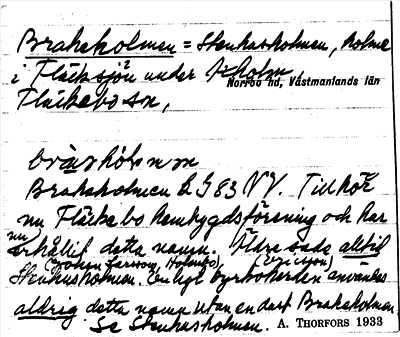 Brakeholmen = Stenhusholmen, holme
i Fläcksjön under V-holm,
Norrbo hd, Västmanlands län
Fläckebo sn,
Brakeholmen L983 NV. Tillhör
nu Fläckebo hembygdsförening och har
nu erhållit detta namn. Äldre sade alltid
(Johan Larsson, Holmbo)
Stenhusholmen. Enligt kyrkoherden användes
aldrig detta namn utan endast Brakeholmen.
Se Stenhusholmen. A. THORFORS 1933